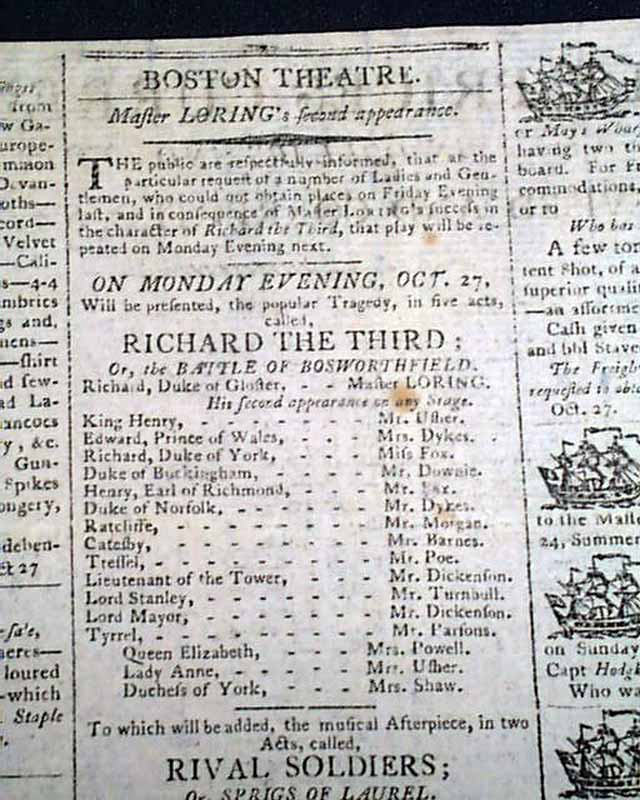 BOSTON THEATRE.
Maſter LORING's ſecond appearance.
THE public are reſpectfully informed, that at the
particular requeſt of a number of Ladies and Gen-
tlemen, who could not obtain places on Friday Evening
laſt, and in conſequence of Maſter LORING's ſucceſs in
the character of Richard the Third, that play will be re-
peated on Monday Evening next.
ON MONDAY EVENING, OCT. 27,
Will be preſented, the popular Tragedy, in five acts,
called,
RICHARD THE THIRD;
Or, the BATTLE OF BOSWORTHFIELD.
Richard, Duke of Gloſter, - - Maſter LORING.
His ſecond appearance on any Stage.
King Henry, - - - - - - Mr. Uſher.
Edward, Prince of Wales, - - - Mrs. Dykes.
Richard, Duke of York, - - - Miſs Fox.
Duke of Buckingham, - - - - Mr. Downie.
Henry, Earl of Richmond, - - - Mr.
Duke of Norfolk, - - - - - Mr. Dykes.
Ratcliffe, - - - - - - - Mr. Morgan.
Cateſby, - - - - - - - Mr. Barnes.
Treſſel, - - - - - - - Mr. Poe.
Lieutenant of the Tower, - - - Mr. Dickenſon.
Lord Stanley, - - - - - - Mr. Turnbull.
Lord Mayor, - - - - - - Mr. Dickenſon.
Tyrrel, - - - - - - - Mr. Parſons.
Queen Elizabeth, - - - - Mrs. Powell.
Lady Anne, - - - - - Mrs. Uſher.
Ducheſs of York, - - - - Mrs. Shaw.
To which will be added, the muſical Afterpiece, in two
Acts, called,
RIVAL SOLDIERS;
Or, SPRIGS OF LAUREL.
from
w Ga-
urope-
mmon
Devan-
oths—
cord—
Velvet
—Cali-
s—4-4
ambrics
gs and,
mens—
—ſhirt
d ſew-
ad La-
ancocs
y, &c.
Gun-
Spikes
ongery,
deben-
ct 27
ſa'e,
acres—
loured
-which
Staple
or May's Wha
having two t
board. For F
commodations,
or to
Who has
A few ton
tent Shot, of a
ſuperior qualit
—an aſſortme
Caſh given
and bbl Stave
The Freigh
requeſted to
Oct. 27.
to the Maſt
24, Summer
on Sunday
Capt Hodg
Who wa